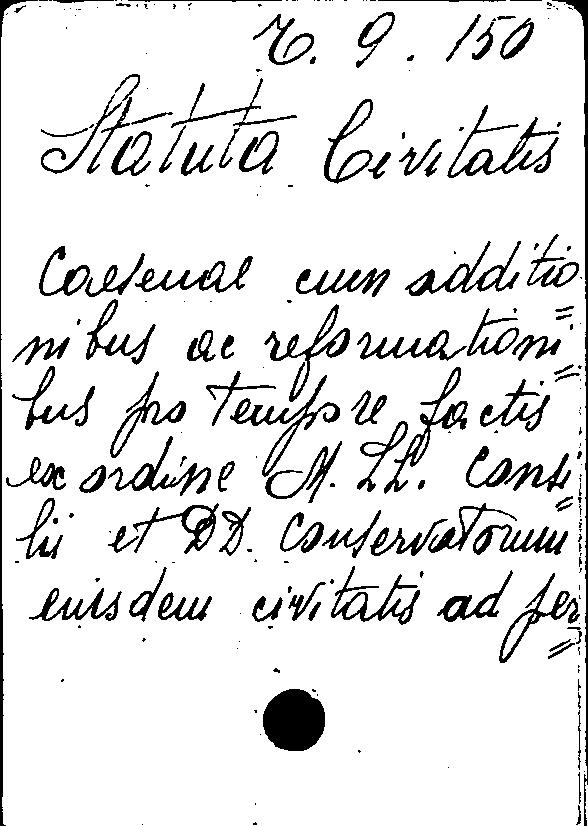 7. 9. 150
Statuta Civitatis
Caesenae cum additio=
nibus ac reformationi=
bus pro tempore factis
ex ordine M. LL. Consi=
lii et DD. Conservatorum
eiusdem civitatis ad per=